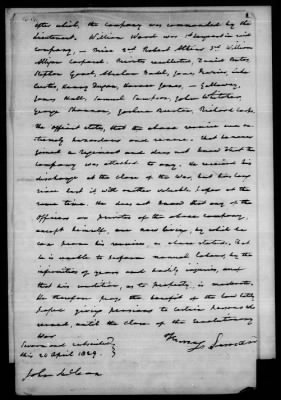 after which, the company was commanded by the
Lieutenant. William Wood was 1st sergeant in said
company, — Brice 2nd Robert Atkins 3rd William
Alyea corporal. Privates recollected, Daniel Bates,
Stephen Grant, Abraham Smith, James Rawins, John
Curtis, Henry Dwyer, Hannar Jones, — Galloway,
James Hall, Samuel Thompson, John Whitaker,
George Sherman, Joshua Burton, Richard
The affiant states, that the above service was ex-
tremely hazardous and severe. That he never
joined a Regiment and does not know that the
company was attached to any. He received his
discharge at the close of the War, but has long
since lost it with other valuable papers at the
same time. He does not know that any of the
officers or privates of the above company,
except himself, are now living, by which he
can prove his services, as above stated. That
he is unable to perform manual labour, by the
infirmities of years and bodily injuries, and
that his condition, as to property, is moderate.
He therefore prays the benefit of the law lately
passed giving pensions to certain persons who
served, until the close of the Revolutionary
War
Sworn and subscribed
this 20 April 1829.
Henry
John McLean